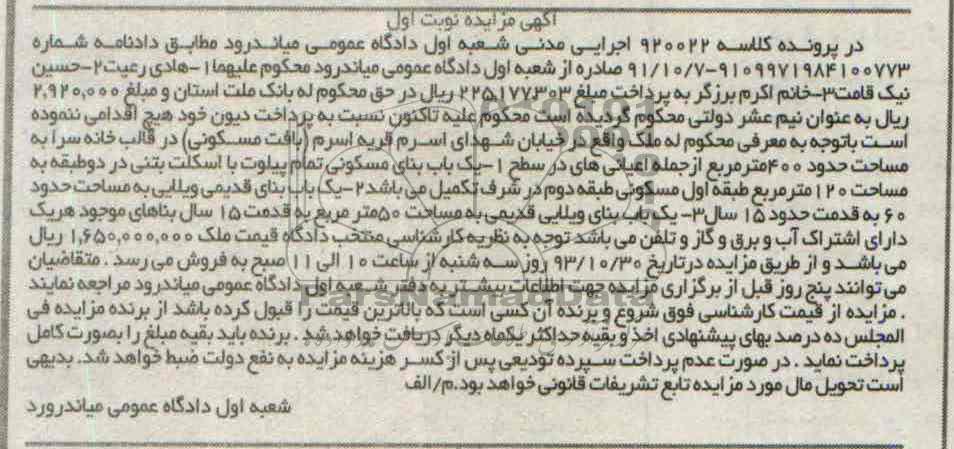 آگهی مزایده نوبت اول
در پرونده کلاسه ۹۲۰۰۲۲ اجرایی مدنی شعبه اول دادگاه عمومی میاندرود مطابق دادنامه شماره
۹۱۰۹۹۷۱۹۸۴۱۰۰۷۷۳-۹۱/۱۰/۷ صادره از شعبه اول دادگاه عمومی میاندرود محکوم علیهما۱-هادی رعیت۲-حسین
نیک قامت۳-خانم اکرم برزگر به پرداخت مبلغ ۲۲۵,۱۷۷۳۰۳ ریال در حق محکوم له بانک ملت استان و مبلغ ۲,۹۲۰,۰۰۰
ریال به عنوان نیم عشر دولتی محکوم گردیده است محکوم علیه تاکنون نسبت به پرداخت دیون خود هیچ اقدامی ننموده
است باتوجه به معرفی محکوم له ملک واقع در خیابان شهدای اسرم قریه اسرم (بافت مسکونی) در قالب خانه سرا به
مساحت حدود ۴۰۰مترمربع ازجمله اعیانی های در سطح ۱-یک باب بنای مسکونی تمام پیلوت با اسکلت بتنی در دوطبقه به
مساحت ۱۲۰ متر مربع طبقه اول مسکونی طبقه دوم در شرف تکمیل می باشد۲-یک باب بنای قدیمی ویلایی به مساحت حدود
۶۰ به قدمت حدود ۱۵ سال۳- یک باب بنای ویلایی قدیمی به مساحت ۵۰متر مربع به قدمت ۱۵ سال بناهای موجود هریک
دارای اشتراک آب و برق و گاز و تلفن می باشد توجه به نظریه کارشناسی منتخب دادگاه قیمت ملک ۱,۶۵۰,۰۰۰,۰۰۰ ریال
می باشد و از طریق مزایده درتاریخ ۹۳/۱۰/۳۰ روز سه شنبه از ساعت ۱۰ الی ۱۱ صبح به فروش می رسد . متقاضیان
می توانند پنج روز قبل از برگزاری مزایده جهت اطلاعات بیشتر به دفتر شعبه اول دادگاه عمومی میاندرود مراجعه نمایند
. مزایده از قیمت کارشناسی فوق شروع و برنده آن کسی است که بالاترین قیمت را قبول کرده باشد از برنده مزایده فی
المجلس ده درصد بهای پیشنهادی اخذ و بقیه حداکثر یکماه دیگر دریافت خواهد شد . برنده باید بقیه مبلغ را بصورت کامل
پرداخت نماید . در صورت عدم پرداخت سپرده تودیعی پس از کسر هزینه مزایده به نفع دولت ضبط خواهد شد. بدیهی
است تحویل مال مورد مزایده تابع تشریفات قانونی خواهد بود.م/الف
شعبه اول دادگاه عمومی میاندرورد
ParsNamadData